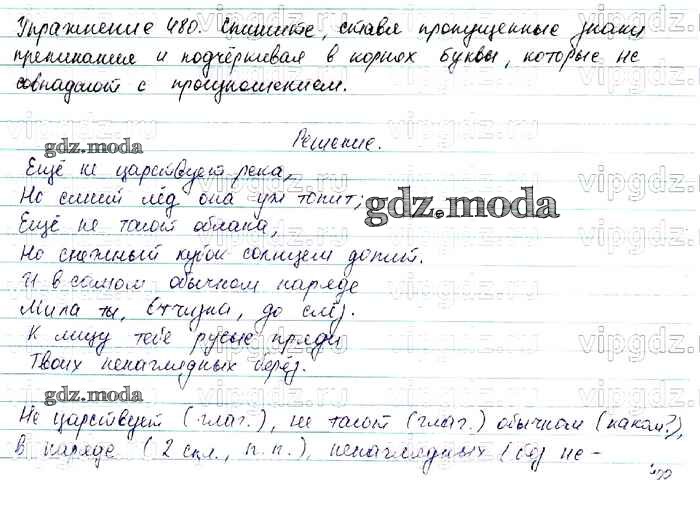 Упражнение 480. Спишите, ставя пропущенные знаки
препинания и подчёркивая в корнях буквы, которые не
совпадают с произношением.
Решение.
gdz.moda
Ещё не царствует река,
Но синий лёд она уж топит;
gdz.moda
Ещё не тают облака,
Но снежный кубок солнцем допит.
И в самом обычном наряде
Мила ты, Отчизна, до слёз.
К лицу тебе русые пряди
Твоих ненаглядных берёз.
gdz.moda
Не царствует (глаг.), не тают (глаг.) обычном (каком?),
в наряде (2 скл., п.п.), ненаглядных (без не-
vipgdz.ru